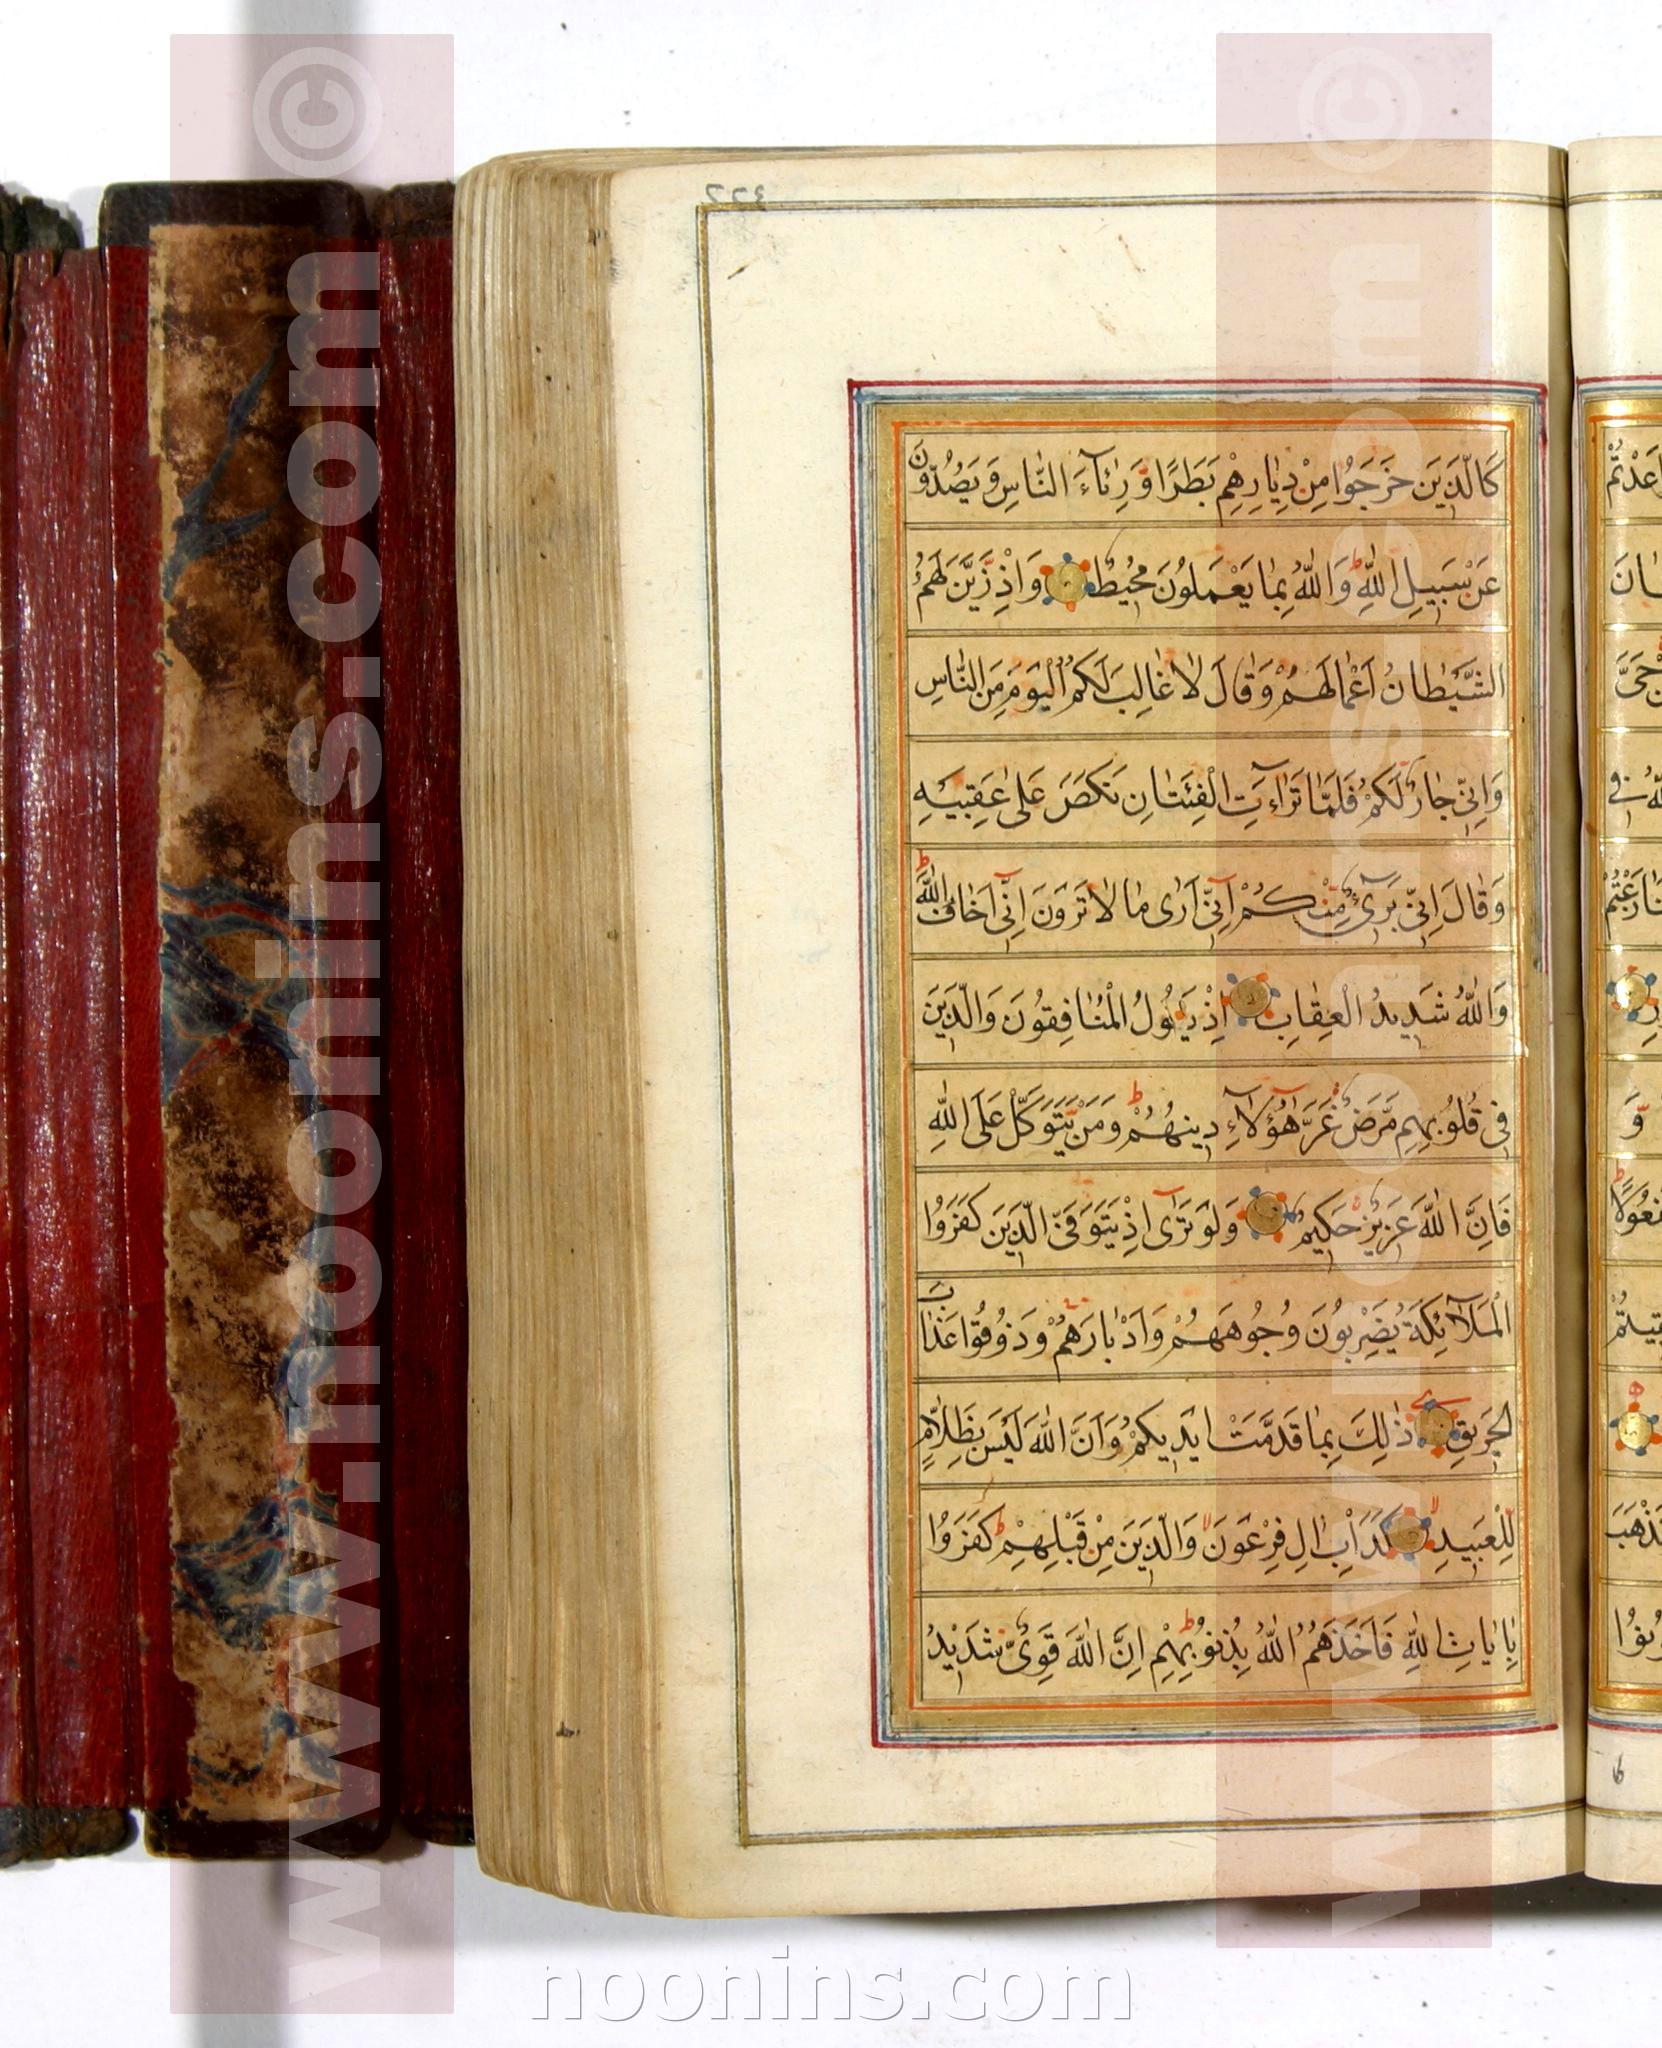 كَالَّذِينَ خَرَجُوا مِنْ دِيَارِهِمْ بَطَرًا وَرِئَاءَ النَّاسِ وَيَصُدُّونَ
عَنْ سَبِيلِ اللَّهِ وَاللَّهُ بِمَا يَعْمَلُونَ مُحِيطٌ وَإِذْ زَيَّنَ لَهُمُ
الشَّيْطَانُ أَعْمَالَهُمْ وَقَالَ لَا غَالِبَ لَكُمُ الْيَوْمَ مِنَ النَّاسِ
وَإِنِّي جَارٌ لَكُمْ فَلَمَّا تَرَاءَتِ الْفِئَتَانِ نَكَصَ عَلَى عَقِبَيْهِ
وَقَالَ إِنِّي بَرِيءٌ مِنْكُمْ إِنِّي أَرَى مَا لَا تَرَوْنَ إِنِّي أَخَافُ اللَّهَ
وَاللَّهُ شَدِيدُ الْعِقَابِ إِذْ يَقُولُ الْمُنَافِقُونَ وَالَّذِينَ
فِي قُلُوبِهِمْ مَرَضٌ غَرَّ هَؤُلَاءِ دِينُهُمْ وَمَنْ يَتَوَكَّلْ عَلَى اللَّهِ
فَإِنَّ اللَّهَ عَزِيزٌ حَكِيمٌ وَلَوْ تَرَى إِذْ يَتَوَفَّى الَّذِينَ كَفَرُوا
الْمَلَائِكَةُ يَضْرِبُونَ وُجُوهَهُمْ وَأَدْبَارَهُمْ وَذُوقُوا عَذَابَ
الْحَرِيقِ ذَلِكَ بِمَا قَدَّمَتْ أَيْدِيكُمْ وَأَنَّ اللَّهَ لَيْسَ بِظَلَّامٍ
لِلْعَبِيدِ كَدَأْبِ آلِ فِرْعَوْنَ وَالَّذِينَ مِنْ قَبْلِهِمْ كَفَرُوا
بِآيَاتِ اللَّهِ فَأَخَذَهُمُ اللَّهُ بِذُنُوبِهِمْ إِنَّ اللَّهَ قَوِيٌّ شَدِيدُ
www.noonins.com ©
www.noonins.com ©
noonins.com